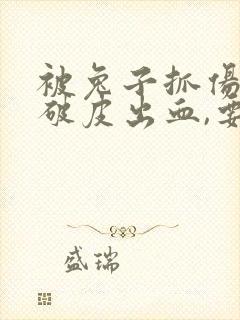 被兔子抓傷
破皮出血,要
盛瑞